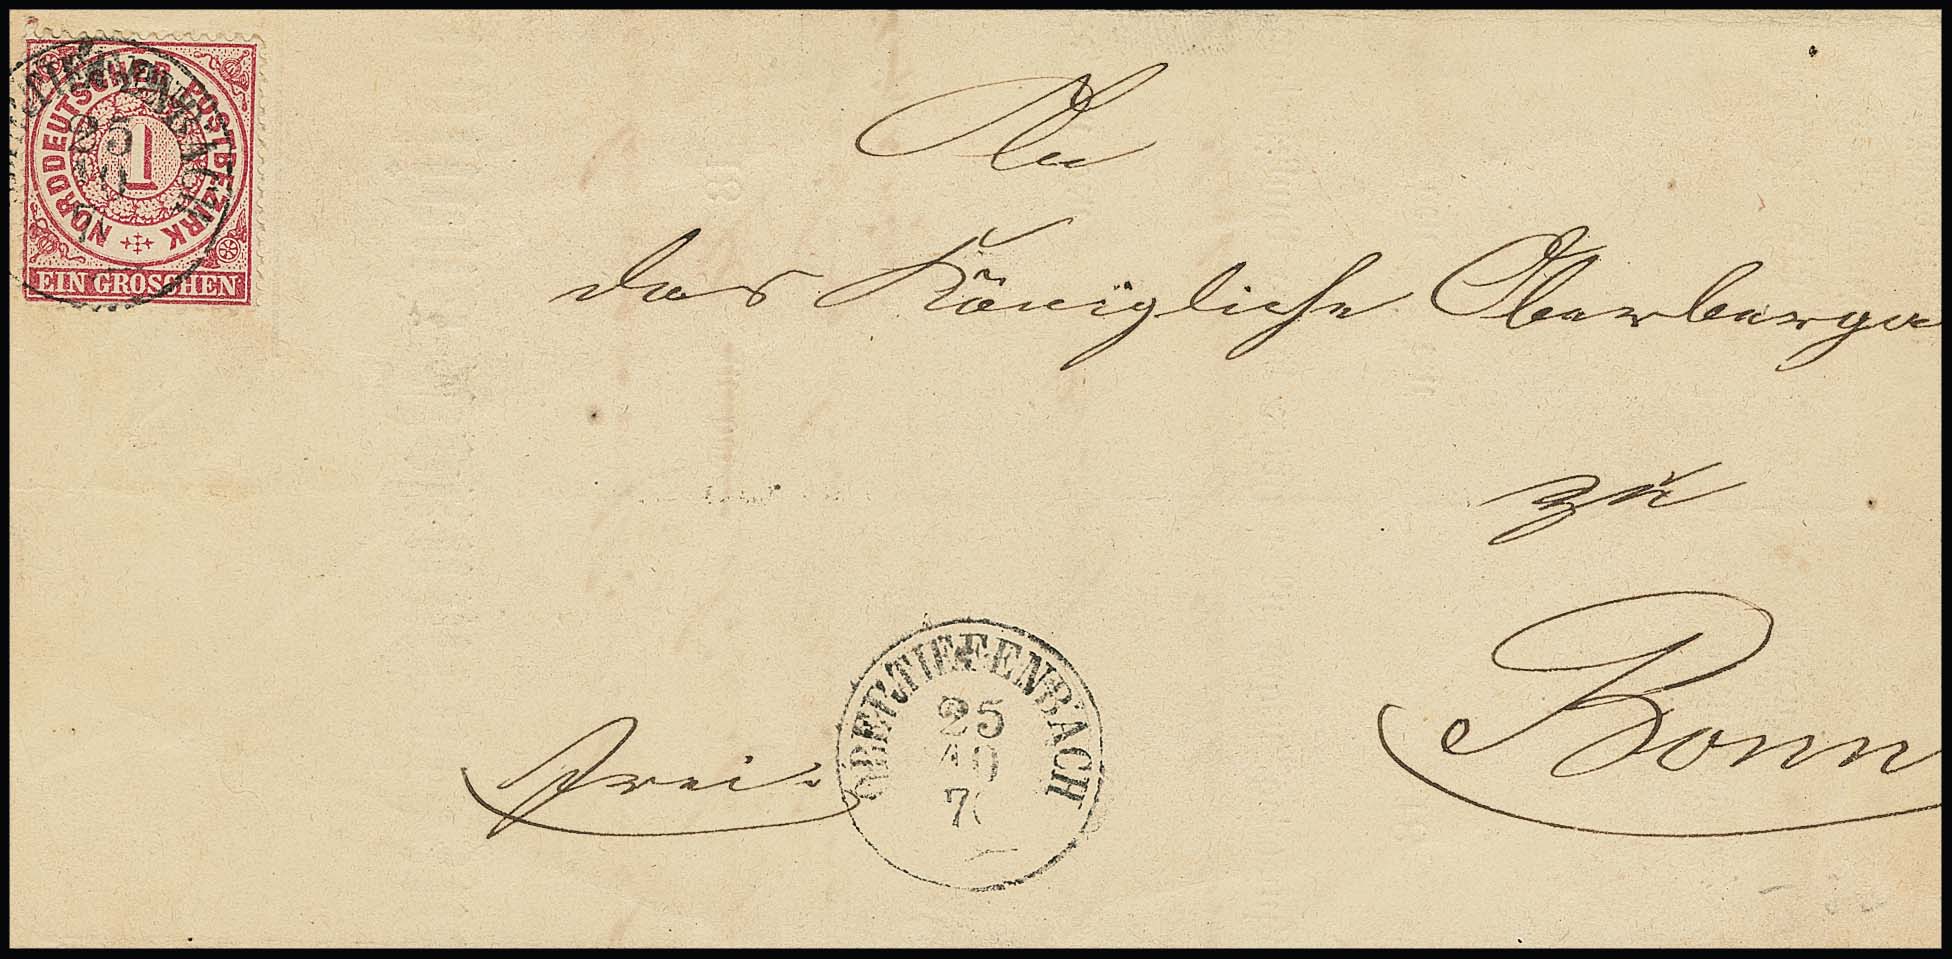 NORDDEUTSCHER POSTBEZIRK
1
EIN GROSCHEN
25
An
das Königliche Oberberga
zu
Bonn
frei.
OBERTIEFENBACH
25
10
70